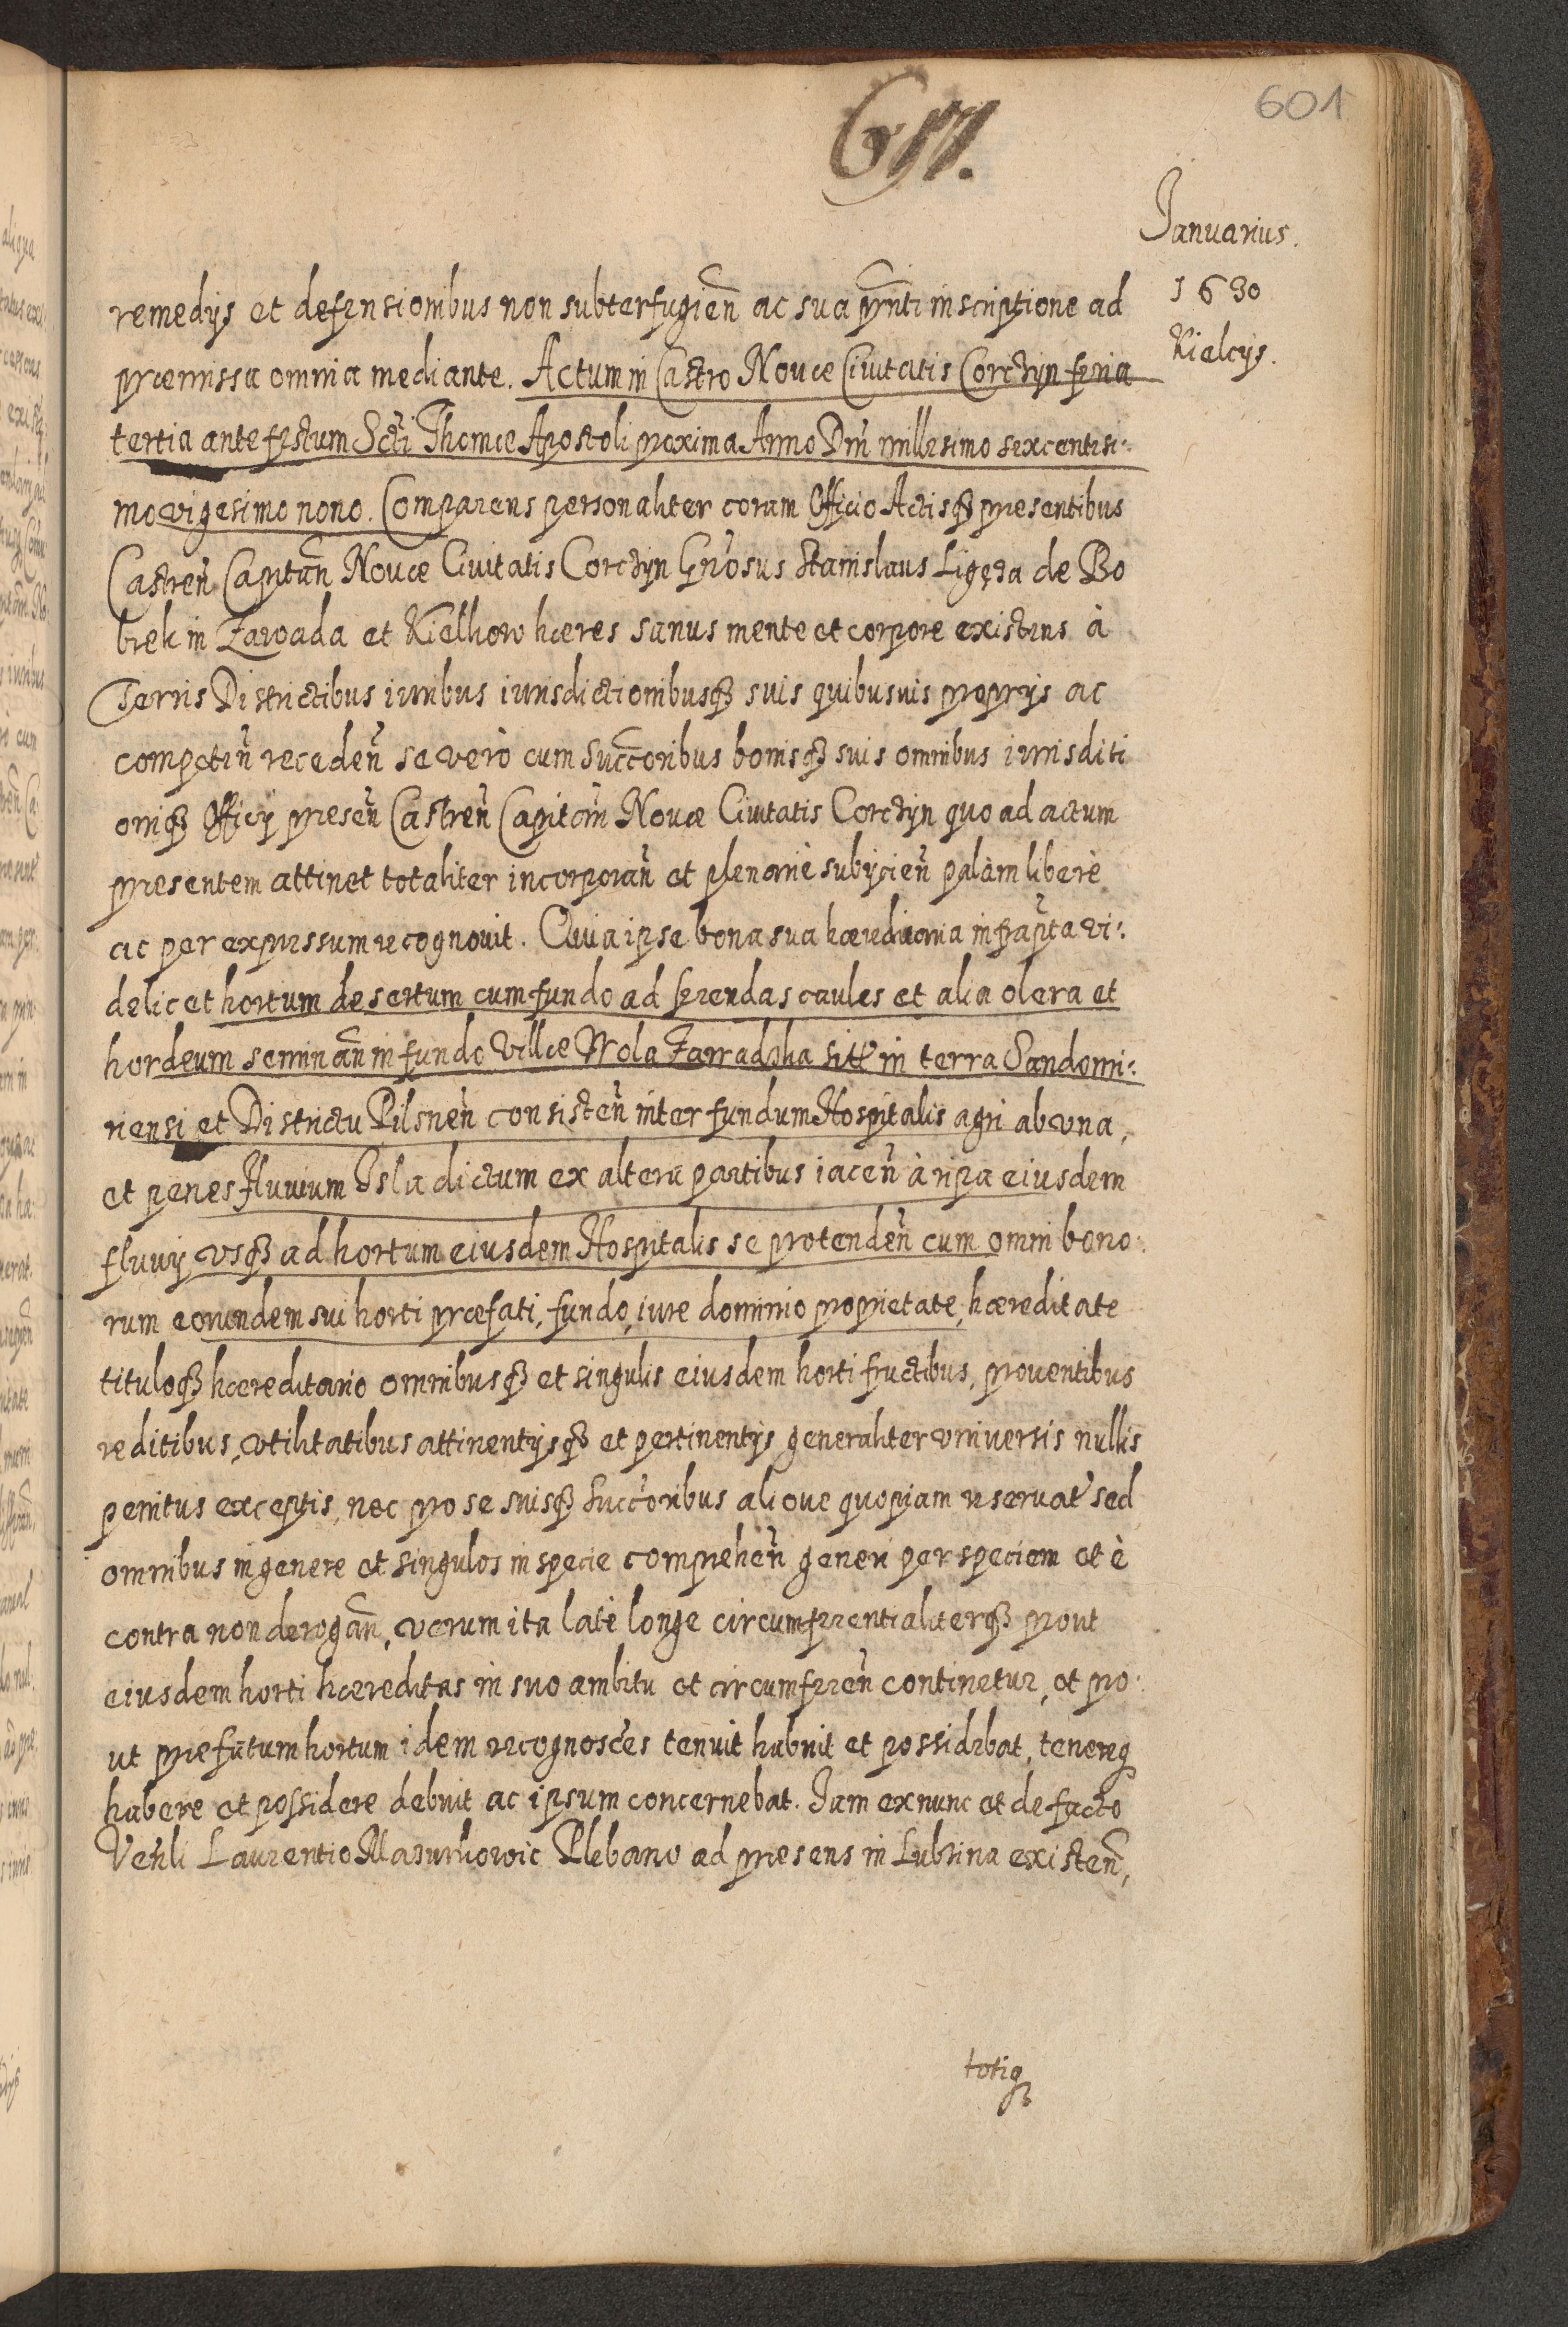 601
657.
Januarius.
1630
Kielcijs.
remedijs et defensionibus non subterfugien̄ ac sua pn̄ti inscriptione ad
præmissa omnia mediante. Actum in Castro Nouæ Ciuitatis Corczyn feria
tertia ante festum Scti Thomæ Apostoli proxima Anno Dni millesimo sexcentesi:
mo vigesimo nono. Comparens personaliter coram Officio Actisq3 presentibus
Castren̄ Capitan̄ Nouæ Ciuitatis Corczyn Gn̄rosus Stanislaus Ligęza de Bo
brek in Zawada et Kielkow hæres sanus mente et corpore existens à
Terris Districtibus iuribus iurisdictionibusq3 suis quibusuis proprijs ac
competen̄ receden̄ se verò cum succ̄oribus bonisq3 suis omnibus iurisditi
oniq3 Officij presen̄ Castren̄ Capitan̄ Nouæ Ciuitatis Corczyn quo ad actum
presentem attinet totaliter incorporan̄ et plenariè subijcien̄ palàm liberè
ac per expressum recognouit. Quia ipse bona sua hæreditaria infrapta vi:
delicet hortum desertum cum fundo ad serendas caules et alia olera et
hordeum seminan̄ in fundo Villæ Wola Zawadzka sitt in terra Sandomi:
riensi et Districtu Pilsnen̄ consisten̄ inter fundum Hospitalis agri ab vna,
et penes fluuium Isla dictum ex altera partibus iacen̄ à ripa eiusdem
fluuij vsq3 ad hortum eiusdem Hospitalis se protenden̄ cum omni bono:
rum eorundem sui horti præfati, fundo, iure dominio proprietate, hæreditate
tituloq3 hæreditario omnibusq3 et singulis eiusdem horti fructibus, prouentibus
reditibus, vtilitatibus attinentijsq3 et pertinentijs generaliter vniuersis nullis
penitus exceptis, nec pro se suisq3 succ̄oribus alioue quopiam reseruat̄ sed
omnibus in genere et singulos in specie comprehen̄ generi per speciem et è
contra non derogan̄, verum ita latè longe circumferentialiterq3 prout
eiusdem horti hæreditas in suo ambitu et circumferen̄ continetur, et pro:
ut prefatum hortum idem recognosc̄es tenuit habuit et possidebat, tenereq
habere et possidere debuit ac ipsum concernebat. Iam ex nunc et de facto
Ven̄li Laurentio Mazurkowic Plebano ad presens in Lubzina existen̄,
totiq3